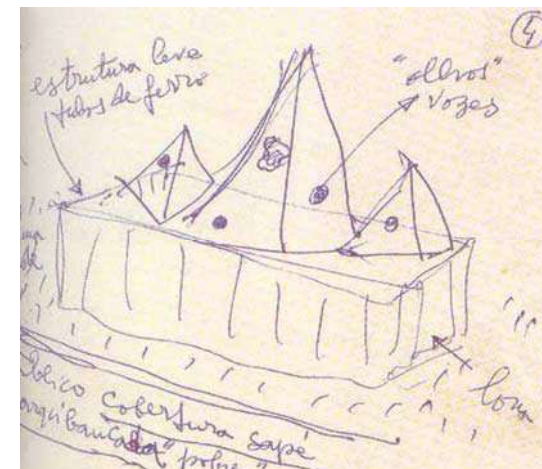 4
estrutura leve
tubos de ferro
"olhos"
vozes
lona
cobertura sapé
arquibancada "pobre"